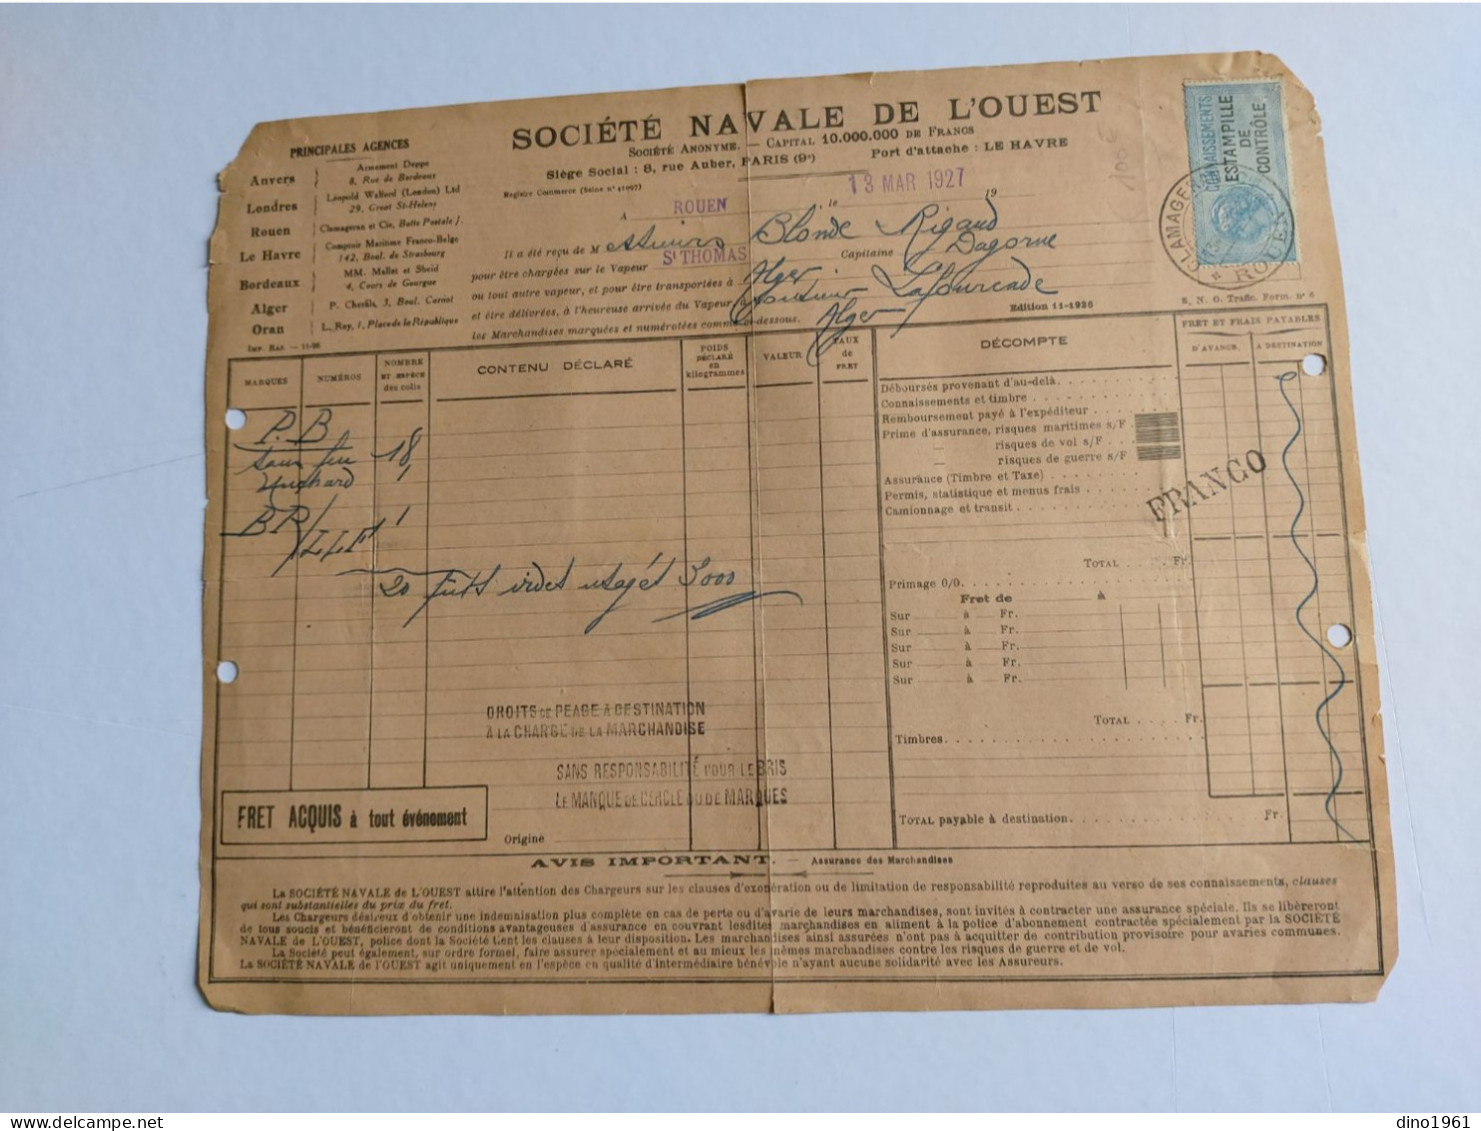 SOCIÉTÉ NAVALE DE L'OUEST
SOCIÉTÉ ANONYME. — CAPITAL 10.000.000 DE FRANCS
Siège Social : 8, rue Auber, PARIS (9e) Port d'attache : LE HAVRE
Registre Commerce (Seine n° 41997)
PRINCIPALES AGENCES
Anvers Armement Deppe
8, Rue de Bordeaux
Londres Léopold Walford (London) Ltd
29, Great St-Helens
Rouen Clamageran et Cie, Boîte Postale J.
Le Havre Comptoir Maritime Franco-Belge
142, Boul. de Strasbourg
Bordeaux MM. Mallet et
4, Cours de Gourgue
Alger P. Chevlis, 3, Boul. Carnot
Oran L. Rey, 1, Place de la République
Imp. Rap. — 11-26
CONNAISSEMENTS
ESTAMPILLE
DE
CONTRÔLE
ROUEN
A ROUEN le 13 MAR 1927 19
Il a été reçu de M Blonde Rigaud
pour être chargées sur le Vapeur ST THOMAS Capitaine Dagorne
ou tout autre vapeur, et pour être transportées à Alger
et être délivrées, à l'heureuse arrivée du Vapeur à Monsieur Lafourcade
les Marchandises marquées et numérotées comme ci-dessous. Alger
Edition 11-1926
S. N. O. Trafic. Form. n° 6
MARQUES NUMÉROS NOMBRE ET ESPÈCE des colis CONTENU DÉCLARÉ POIDS DÉCLARÉ en kilogrammes VALEUR TAUX de FRET DÉCOMPTE FRET ET FRAIS PAYABLES
D'AVANCE. A DESTINATION
P.B
18
BR 1
20 fûts vides usagés 3000
Déboursés provenant d'au-delà
Connaissements et timbre
Remboursement payé à l'expéditeur
Prime d'assurance, risques maritimes s/F
— risques de vol s/F
— risques de guerre s/F
Assurance (Timbre et Taxe)
Permis, statistique et menus frais
Camionnage et transit
FRANCO
TOTAL Fr.
Primage 0/0
Fret de à
Sur à Fr.
Sur à Fr.
Sur à Fr.
Sur à Fr.
Sur à Fr.
TOTAL Fr.
Timbres
TOTAL payable à destination Fr.
DROITS DE PEAGE A DESTINATION
A LA CHARGE DE LA MARCHANDISE
SANS RESPONSABILITÉ POUR LE BRIS
LE MANQUE DE CERCLE OU DE MARQUES
FRET ACQUIS à tout événement
Origine
AVIS IMPORTANT. — Assurance des Marchandises
La SOCIÉTÉ NAVALE de L'OUEST attire l'attention des Chargeurs sur les clauses d'exonération ou de limitation de responsabilité reproduites au verso de ses connaissements, clauses
qui sont substantielles du prix du fret.
Les Chargeurs désireux d'obtenir une indemnisation plus complète en cas de perte ou d'avarie de leurs marchandises, sont invités à contracter une assurance spéciale. Ils se libèreront
de tous soucis et bénéficieront de conditions avantageuses d'assurance en couvrant lesdites marchandises en aliment à la police d'abonnement contractée spécialement par la SOCIÉTÉ
NAVALE de L'OUEST, police dont la Société tient les clauses à leur disposition. Les marchandises ainsi assurées n'ont pas à acquitter de contribution provisoire pour avaries communes.
La Société peut également, sur ordre formel, faire assurer spécialement et au mieux les mêmes marchandises contre les risques de guerre et de vol.
La SOCIÉTÉ NAVALE de l'OUEST agit uniquement en l'espèce en qualité d'intermédiaire bénévole n'ayant aucune solidarité avec les Assureurs.
dino1961